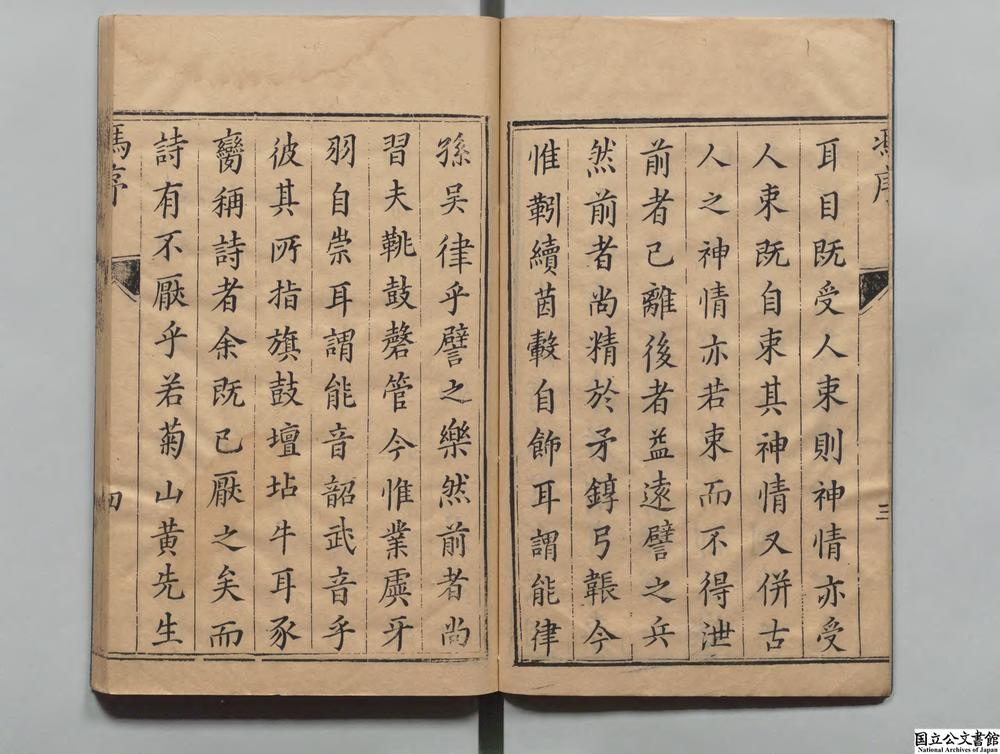 馮序
三
耳目既受人束則神情亦受
人束既自束其神情又併古
人之神情亦若束而不得泄
前者已離後者益遠譬之兵
然前者尚精於矛錞弓韔今
惟靷續茵轂自飾耳謂能律
孫吳律乎譬之樂然前者尚
習夫鞉鼓磬管今惟業虡牙
羽自崇耳謂能音韶武音乎
彼其所指旗鼓壇坫牛耳豕
臠稱詩者余既已厭之矣而
詩有不厭乎若菊山黃先生
馮序
四
国立公文書館
National Archives of Japan